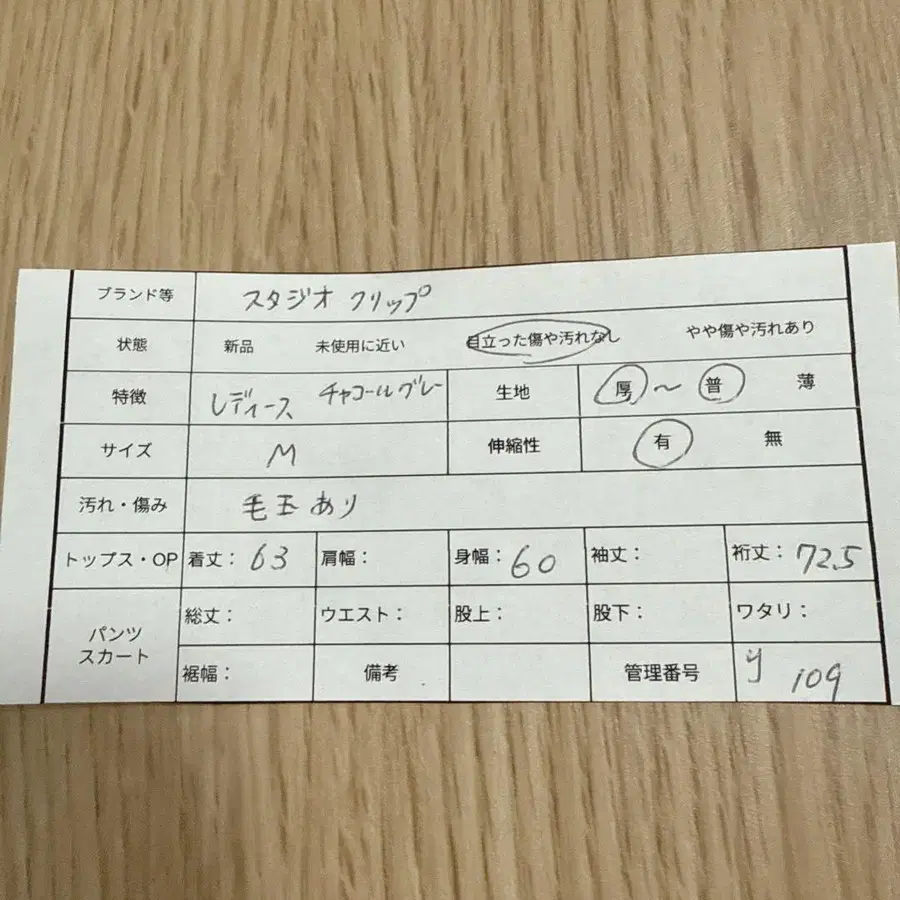 ブランド等 スタジオ クリップ
状態 新品 未使用に近い 目立った傷や汚れなし やや傷や汚れあり
特徴 レディース チャコールグレー 生地 厚 〜 普 薄
サイズ M 伸縮性 有 無
汚れ・傷み 毛玉あり
トップス・OP 着丈：63 肩幅： 身幅：60 袖丈： 裄丈：72.5
パンツ スカート 総丈： ウエスト： 股上： 股下： ワタリ：
裾幅： 備考 管理番号 y 109